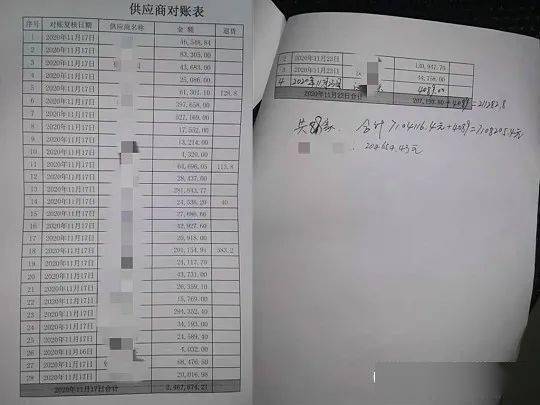 供应商对账表
序号 对账复核日期 供应商名称 金额 退货
1 2020年11月17日 46,548.84
2 2020年11月17日 83,305.00
3 2020年11月17日 43,683.00
4 2020年11月17日 25,086.00
5 2020年11月17日 61,301.10 128.8
6 2020年11月17日 397,658.00
7 2020年11月17日 527,169.00
8 2020年11月17日 17,552.00
9 2020年11月17日 13,214.00
10 2020年11月17日 4,320.00
11 2020年11月17日 64,696.05 113.8
12 2020年11月17日 28,437.00
13 2020年11月17日 281,843.77
14 2020年11月17日 24,536.20 40
15 2020年11月17日 27,686.60
16 2020年11月17日 42,927.60
17 2020年11月17日 20,918.00
18 2020年11月17日 201,154.95 583.2
19 2020年11月17日 24,117.70
20 2020年11月17日 43,731.00
21 2020年11月17日 26,359.10
22 2020年11月17日 15,769.00
23 2020年11月17日 294,352.40
24 2020年11月17日 34,193.00
25 2020年11月17日 24,589.40
26 2020年11月16日 4,032.00
27 2020年11月17日 68,476.50
28 2020年11月17日 20,016.98
2020年11月17日合计 2,467,674.21
2 2020年11月23日
3 2020年11月23日 44,758.00
4 2020年11月23日 4089.00
2020年11月23日合计 +4089=211282.8
合计 7104116.4元+4089=7108205.4元
204654.43元